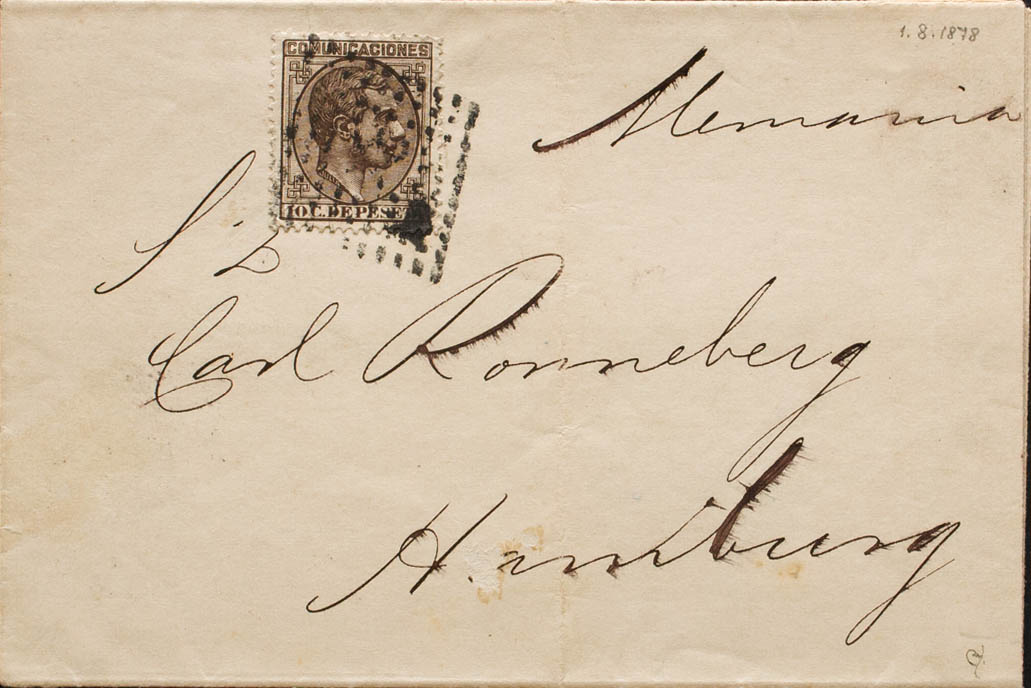 1.8.1878
COMUNICACIONES
Alemania
10 C. DE PESETA
S. D.
Carl Ronneberg
Hamburg